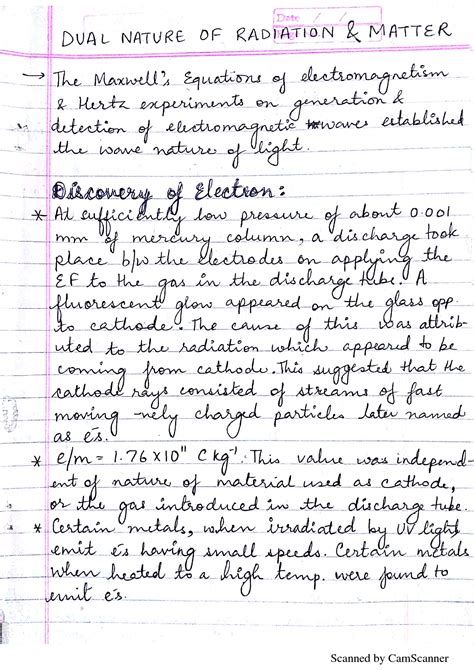 Date / /
DUAL NATURE OF RADIATION & MATTER
→ The Maxwell's Equations of electromagnetism
& Hertz experiments on generation &
detection of electromagnetic waves established
the wave nature of light.
Discovery of Electron:
* At sufficiently low pressure of about 0.001
mm of mercury column, a discharge took
place b/w the electrodes on applying the
EF to the gas in the discharge tube. A
fluorescent glow appeared on the glass opp.
to cathode. The cause of this was attrib-
uted to the radiation which appeared to be
coming from cathode. This suggested that the
cathode rays consisted of streams of fast
moving -nely charged particles later named
as e⁻s.
* e/m = 1.76 × 10¹¹ C kg⁻¹. This value was independ-
ent of nature of material used as cathode,
or the gas introduced in the discharge tube.
* Certain metals, when irradiated by UV light,
emit e⁻s having small speeds. Certain metals
when heated to a high temp. were found to
emit e⁻s.
Scanned by CamScanner